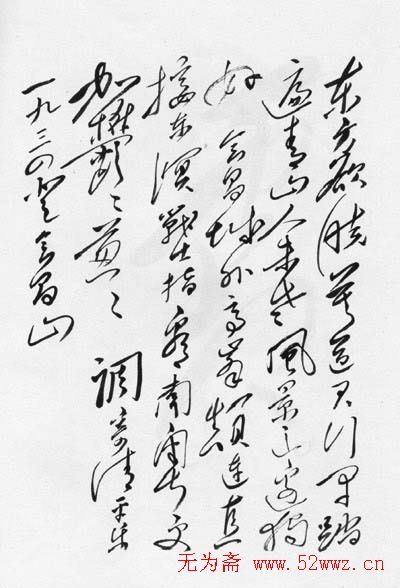 东方欲曉莫道君行早踏
遍青山人未老風景这边獨
好 会昌城外高峯顛連直
接东溟戰士指看南粤更
加鬱〻葱〻 調寄清平乐
一九三四登会昌山
无为斋 www.52wwz.cn